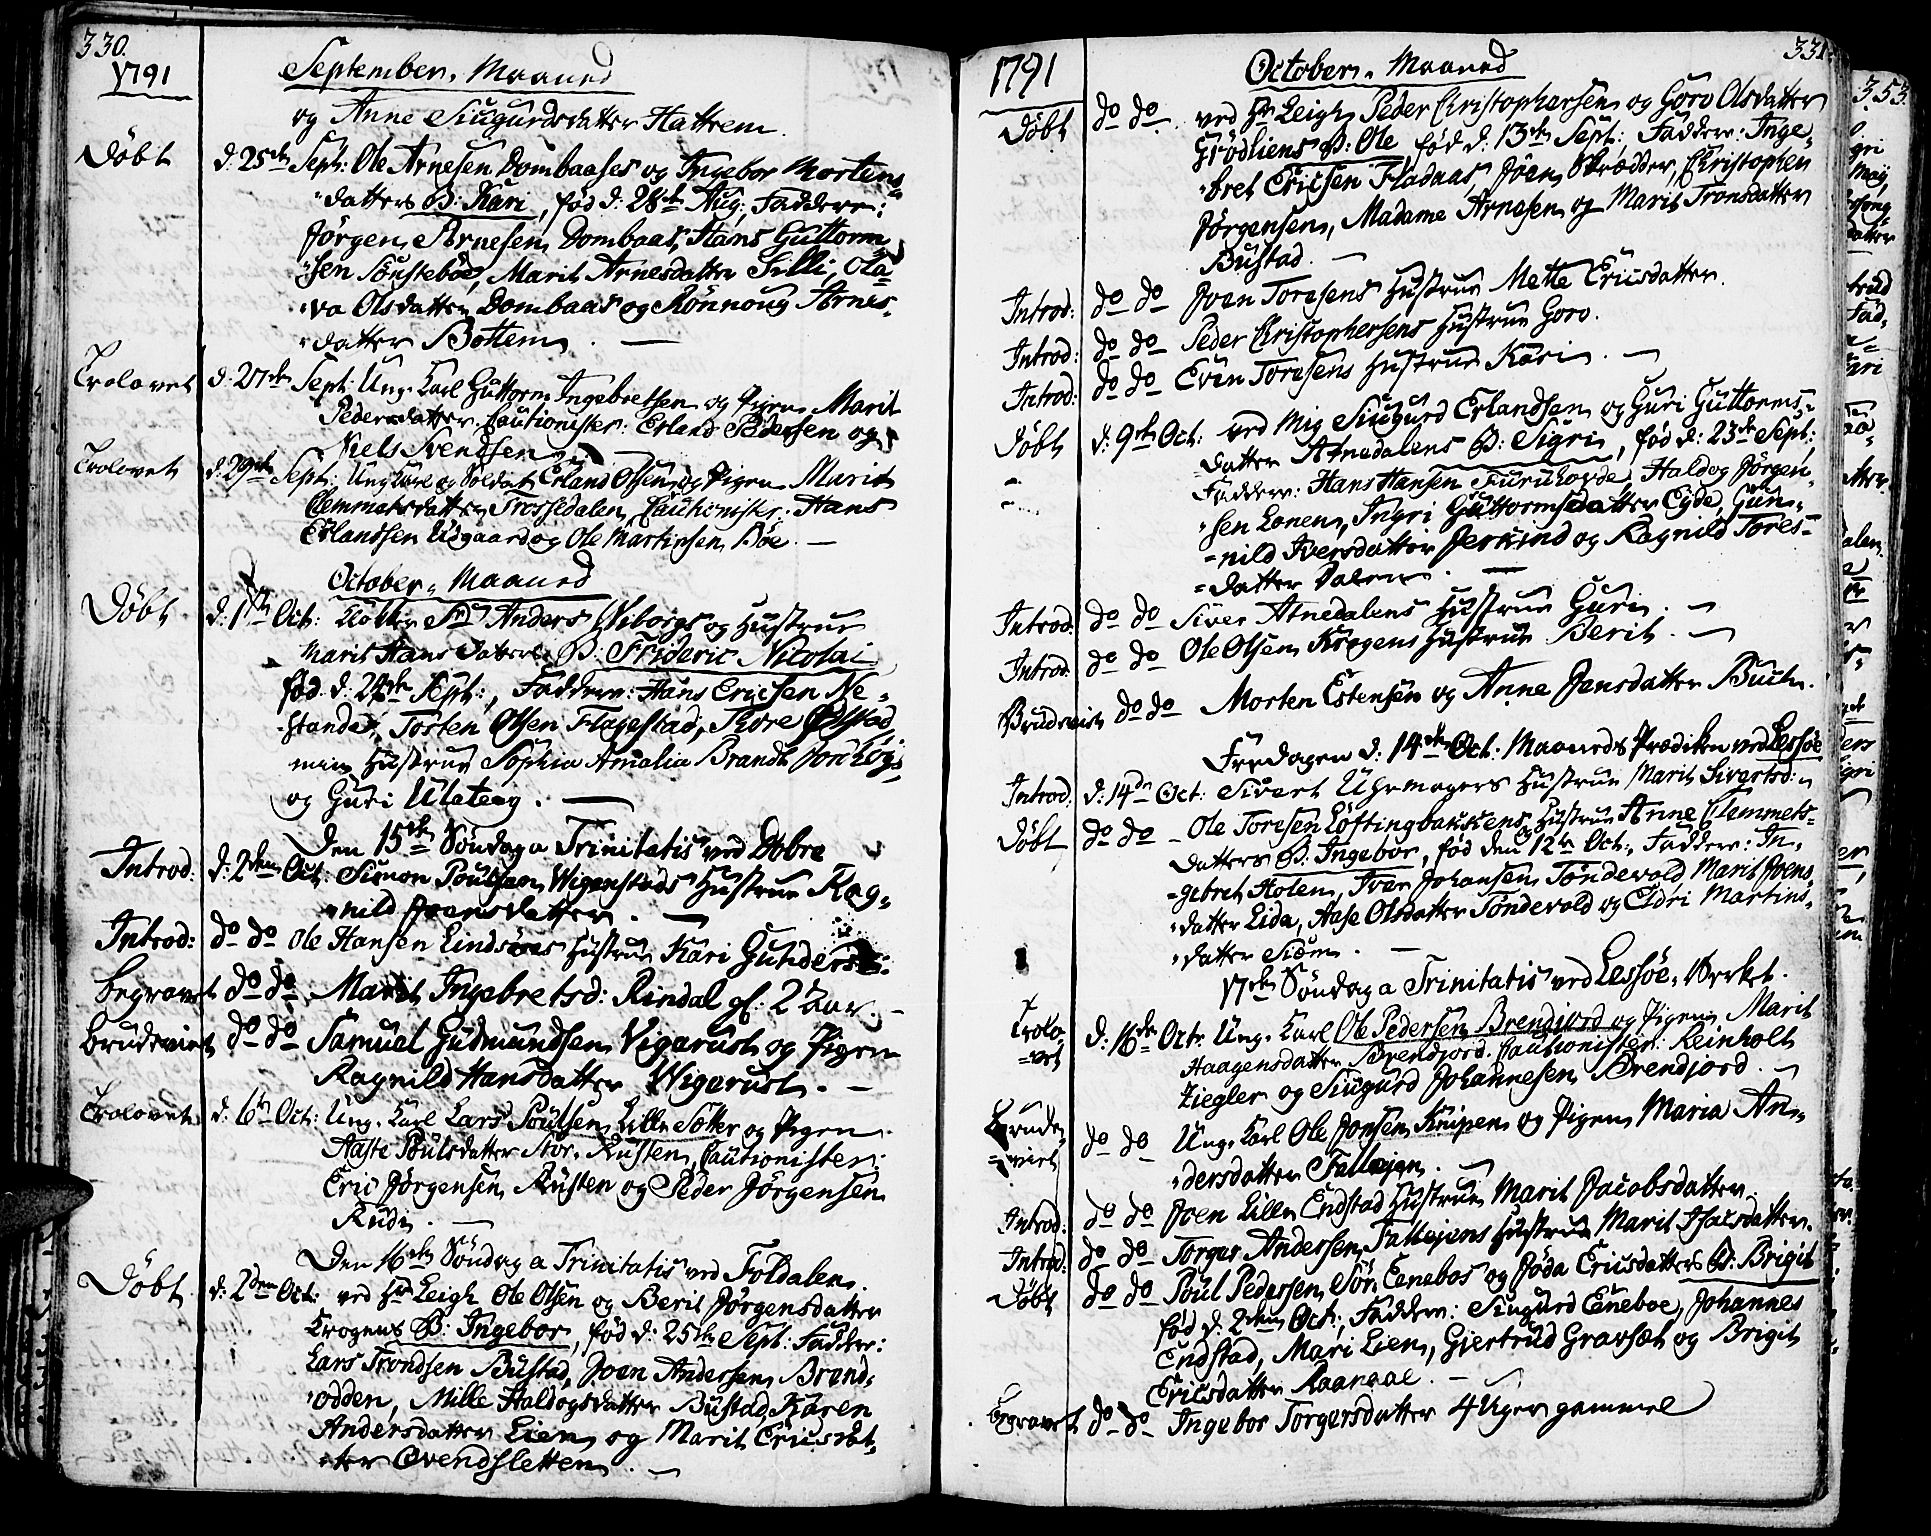 330.
1791
September. Maaned
og Anne Siugurdsdatter Hattrem.
Döbt
d: 25de Sept: Ole Arnesen Dombaases og Ingebor Mortens
datters B: Kari, fød d: 28de Aug: Faddere:
Jörgen Arnesen Dombaas, Hans Guttorm
sen Tønsteboe, Marit Arnesdatter Silli, Ola-
va Olsdatter Dombaas og Rönnoug Arnes-
datter Bottem. —
Trolovet
d: 27de Sept: Ung. Karl Guttorm Ingebretsen og Pigen Marit
Pedersdatter, Cautionister: Erland Pedersen og
Niels Svendsen. —
Trolovet
d: 29de Sept: Ung Karl og Soldat Erland Olsen og Pigen Marit
Clemmetsdatter Trossedalen, Cautionister: Hans
Erlandsen Udgaard og Ole Martinsen Böe. —
October. Maaned
Döbt
d: 1ste Oct: Klokker Sr Anders Wiborgs og Hustrue
Marit Hans datters B: Frideric Nicolai
fød d: 22de Sept:, Faddere: Hans Ericsen Ne-
stande, Torsten Olsen Flagestad, Thore Odstad,
min Hustrue Sophia Amalia Brandt for Løgs
og Guri Ulateig. —
Den 15de Søndag a Trinitatis ved Dobre
Introd:
d: 2den Oct: Simon Poulsen Wigenstads Hustrue Rag-
nild Joensdatter. —
Introd:
do do Ole Hansen Lindsöes Hustrue Kari Gunders
Begravet
do do Marit Ingebretsd: Rindal gl: 2 Aar. —
Brudeviet
do do Samuel Gudmundsen Vigerust og Pigen
Ragnild Hansdatter Wigerust. —
Trolovet
d: 6te Oct: Ung. Karl Lars Poulsen Lille Sötter og Pigen
Aaste Poulsdatter Stor. Rusten, Cautionister:
Eric Jörgensen Rusten og Peder Jörgensen
Rudi. —
Den 16de Søndag a Trinitatis ved Foldalen.
Döbt.
d: 2den Oct: ved Hr Leigh Ole Olsen og Berit Jörgensdatter
Krogens B: Ingebor, fød d: 25de Sept: Fadder:
Lars Trondsen Bustad, Joen Andersen Brend-
odden, Mille Haldogsdatter Bustad, Karen
Andersdatter Lien og Marit Ericsdat-
ter Ovendsletten. —
331.
1791
October. Maaned
Döbt
do do. ved Hr Leigh Peder Christophersen og Goro Olsdatter
Grödliens B: Ole, fød d: 13de Sept: Faddere: Inge-
bret Ericsen Fladaas, Joen Skrædder, Christophen
Jörgensen, Madame Arnesen og Marit Tronsdatter
Bustad. —
Introd:
do do Joen Toresens Hustrue Mette Ericsdatter.
Introd:
do do Peder Christophersens Hustrue Goro.
Introd:
do do Even Toresens Hustrue Kari. —
Döbt
d: 9de Oct: ved Mig Siugurd Erlandsen og Guri Guttorms-
datter Atnedalens B: Sigri, fød d: 23de Sept:
Faddere: Hans Hansen Furuhovde, Haldog Jörgen-
sen Lonen, Ingri Guttormsdatter Eyde, Gun-
nild Iversdatter Jerkind og Ragnild Tores-
datter Dalen. —
Introd:
do do Siver Atnedalens Hustrue Guri. —
Introd:
do do Ole Olsen Krogens Hustrue Berit. —
Brudeviet
do do Morten Estensen og Anne Jensdatter Buen.
Fredagen d: 14de Oct. Maaneds Prædiken ved Lessöe
Introd:
d: 14de Oct: Sivert Uhrmagers Hustrue Marit Sivertsd:
Döbt
do do - Ole Toresen Löftingbakkens og Hustrue Anne Clemmets-
datters B: Ingebor, fød den 12te Oct:, Faddere: In-
gebret Holen, Iver Johansen Tondevold Marit Joens-
datter Lida, Aase Olsdatter Tondevold og Eldri Martins-
datter Siem. —
17de Søndag a Trinitatis ved Lessöe. Verket.
Trolo-
vet
d: 16de Oct: Ung. Karl Ole Pedersen Brendjord og Pigen Marit
Haagensdatter Brendjord. Cautionister: Reinholt
Ziegler og Siugurd Johannesen Brendjord. —
Brude-
viet
do do Ung. Karl Ole Jonsen Knipen og Pigen Maria An-
dersdatter Tallejen. —
Introd:
do do Joen Lille Endstad Hustrue Marit Jacobsdatter.
Introd:
do do Torger Andersen Tallejens Hustrue Marit Isacsdatter.
Döbt
do do Poul Pedersen Sör Enebos og Jöda Ericsdatters B: Brigit
fød d: 2den Oct:, Faddere: Siugurd Eneboe, Johannes
Endstad, Mari Lien, Gjertrud Gravset og Brigit
Ericsdatter Raanaae. —
Begravet
do do Ingebor Torgersdatter 4 Uger gammel
353.